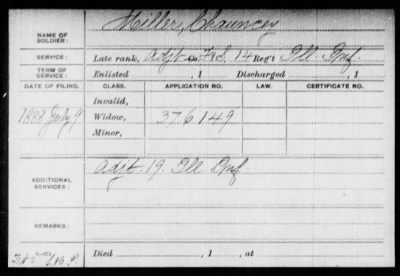 NAME OF SOLDIER: Miller, Chauncey
SERVICE: Late rank, Adjt. Co. F&S, 14 Reg't Ill Inf.
TERM OF SERVICE: Enlisted , 1 Discharged , 1
DATE OF FILING. CLASS. APPLICATION NO. LAW. CERTIFICATE NO.
Invalid,
1888 July 9 Widow, 376149
Minor,
ADDITIONAL SERVICES: Adjt. 19 Ill Inf.
REMARKS:
Died , 1 , at